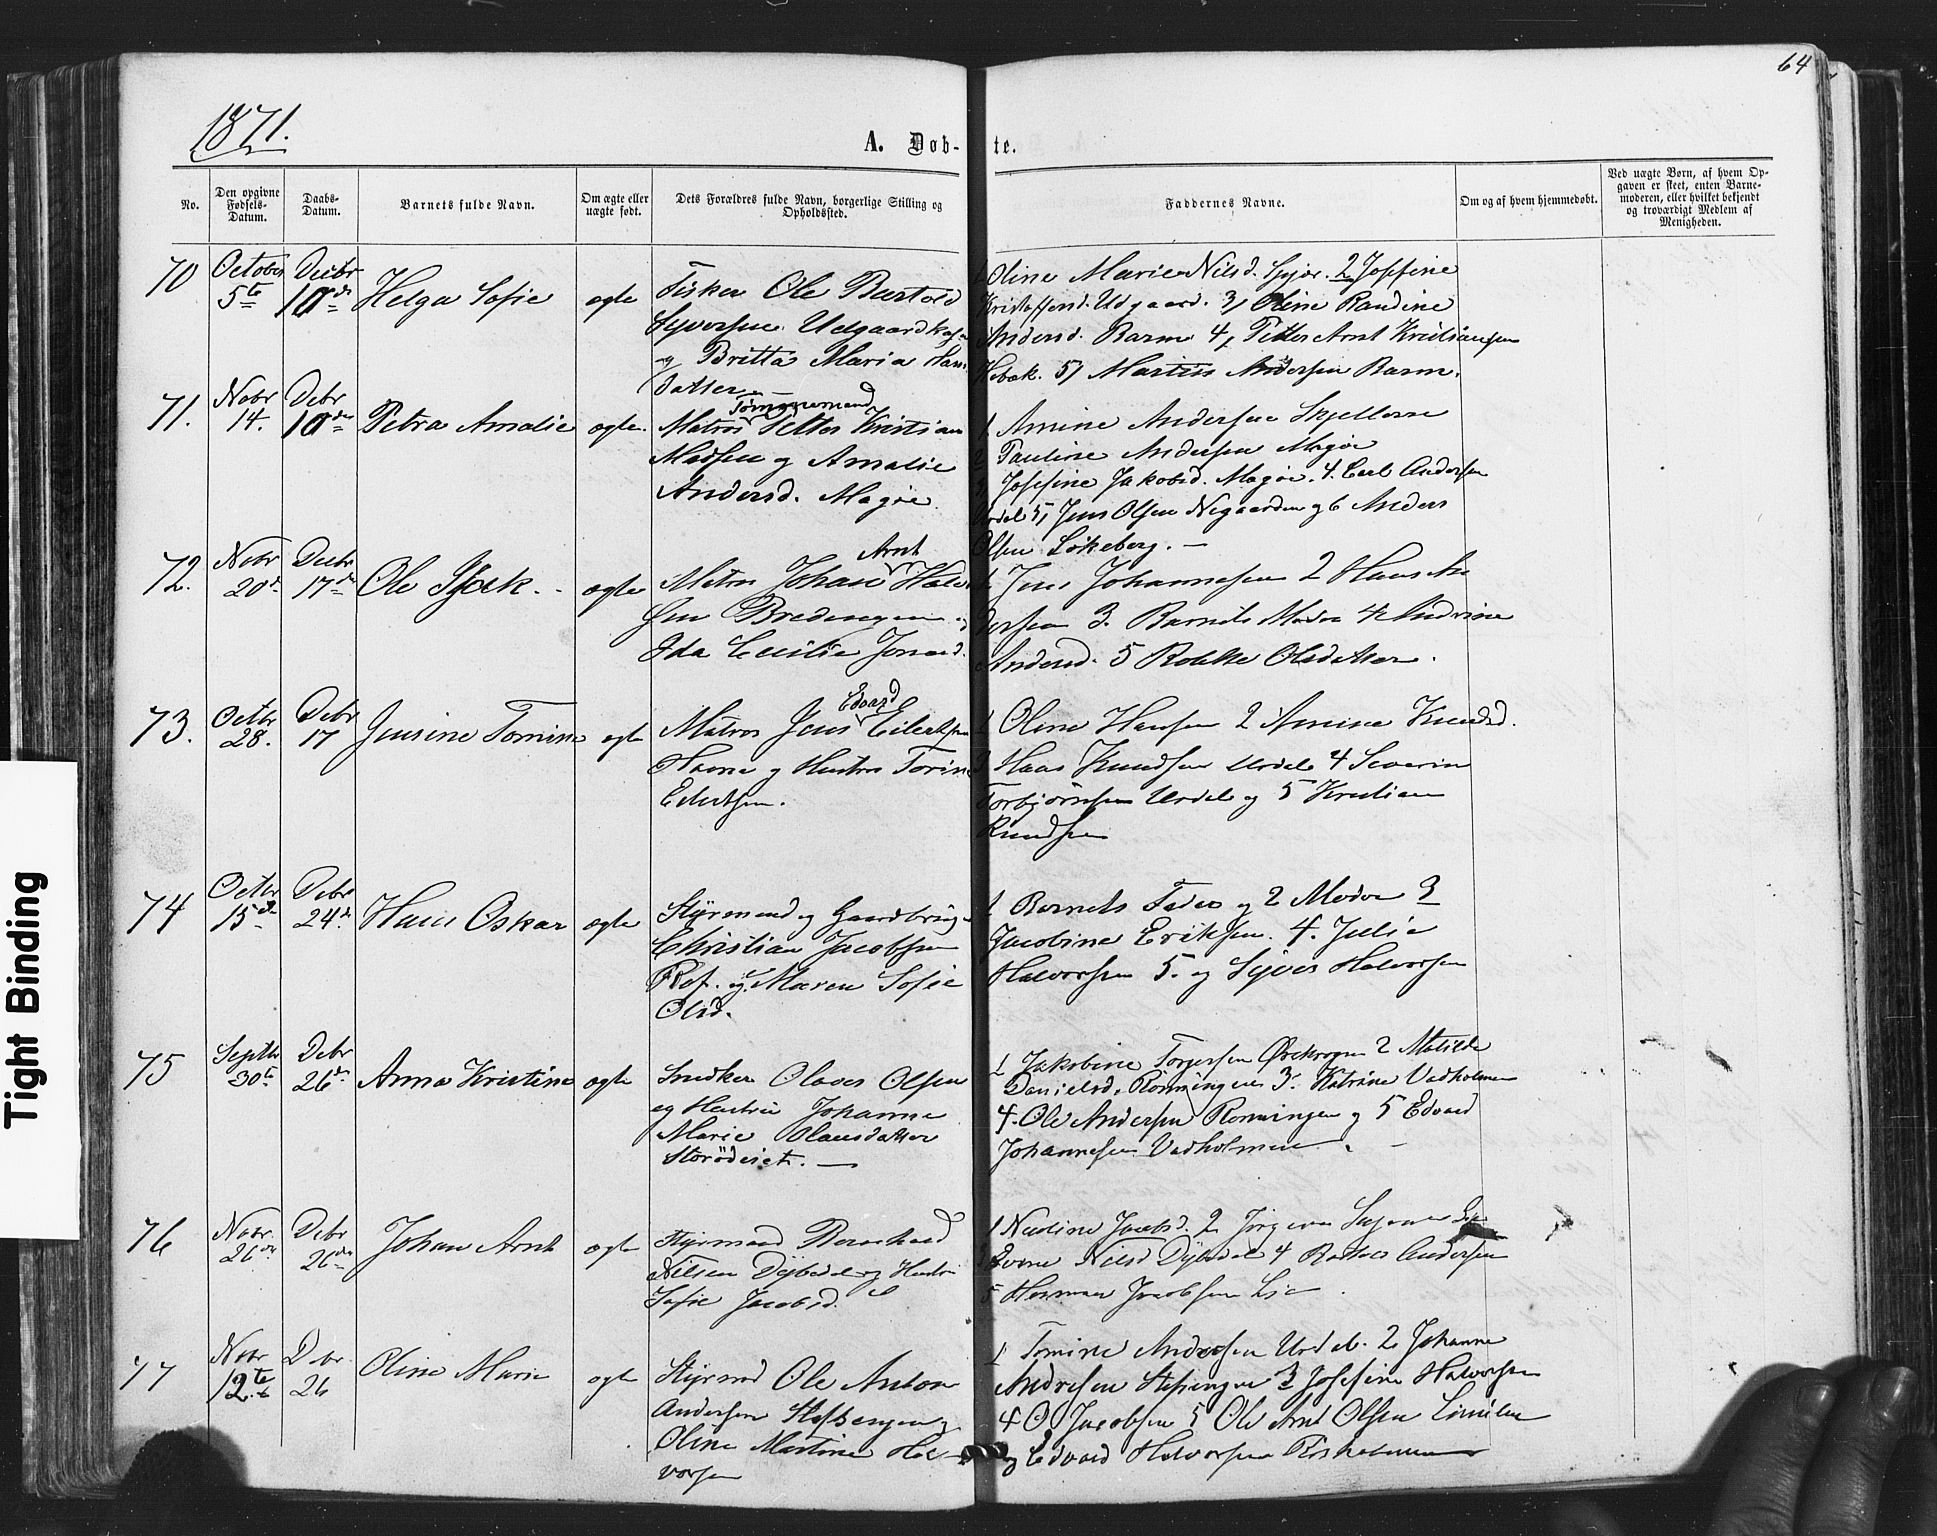 64
1871.
A. Døb- te.
No.
Den opgivne Fødsels-Datum.
Daabs-Datum.
Barnets fulde Navn.
Om ægte eller uægte født.
Dets Forældres fulde Navn, borgerlige Stilling og Opholdssted.
Faddernes Navne.
Om og af hvem hjemmedøbt.
Ved uægte Børn, af hvem Op-
gaven er skeet, enten Barne-
moderen, eller hvilket bekjendt
og troværdigt Medlem af
Menigheden.
70 October 5te Decbr 10de Helga Sofie ægte
Fisker Ole Bertod
Syversen Udgaard
og Britta Maria
datter
Oline Marie Nilsd. 2 Josefine
Udgaard. 3, Oline Randine
Andersd. Barm 4, Petter Arnt Kristiansen
5, Martin Andersen Barm.
71. Novbr 14. Debr 10de Petra Amalie ægte
Tømmermand
Matros Petter Kristian
Madsen og Amalie
Andersd. Magøe
1 Amine Andersen
Pauline Andersen Magøe
Josefine Jakobsd. Magøe. 4. Carl Andersen
Urdal 5, Jens Olsen Nygaarden og 6 Anders
Olsen Løkeberg. —
72. Novbr 20de Decbr 17de Ole ægte
Arnt
Matros Johan
og
Ida Cecilie
1 Jens Johannesen 2 Hans An
dersen 3. Barnets Moder 4 Andrine
Andersd. 5 Olsdatter.
73. Octbr 28. Debr 17 Jensine Tomine ægte
Edvard
Matros Jens Eilertsen
Havne og Hustru
Eilertsen.
1 Oline Hansen 2 Amine Knudsd.
Hans Knudsen Urdal 4 Severin
Torbjørnsen Urdal og 5 Kristian
Knudsen
74 Octbr 15de Debr 24de Hans Oskar ægte
Styrmand og Gaardbruger
Christian Jacobsen
og Maren Sofie
Olsd.
1 Barnets Fader og 2 Moder 3
Jacobine Eriksen. 4. Julie
Halvorsen 5. og Syver Halvorsen
75 Septbr 30te Debr 26de Anna Kristine ægte
Snedker Olaves Olsen
og Hustru Johanne
Marie Olausdatter
Storødeiet. —
1 Jakobine Torgersen Ørekrogen 2 Matilde
Danielsd. Rønningen 3. Katrine Vadholmen
4. Ole Andersen Rønningen og 5 Edvard
Johannesen Vadholmen. —
76 Novbr 26de Debr 26de Johan Arnt ægte
Styrmand Bernhard
Nilsen Dybedal og Hustru
Sofie Jacobsd.
1 Jacobsd. 2
Nilsd Dybedal 4 Andersen
5 Herman Jacobsen Lie.
77 Novbr 12te 26 Oline Marie ægte
Styrmd Ole Anton
Andersen
Oline Martine Hal-
vorsen
1 Tomine Andersen Urdal. 2 Johanne
Andresen 3 Josefine Halvorsen
4 O Jacobsen 5 Ole Arnt Olsen
og Edvard Halvorsen
Tight Binding